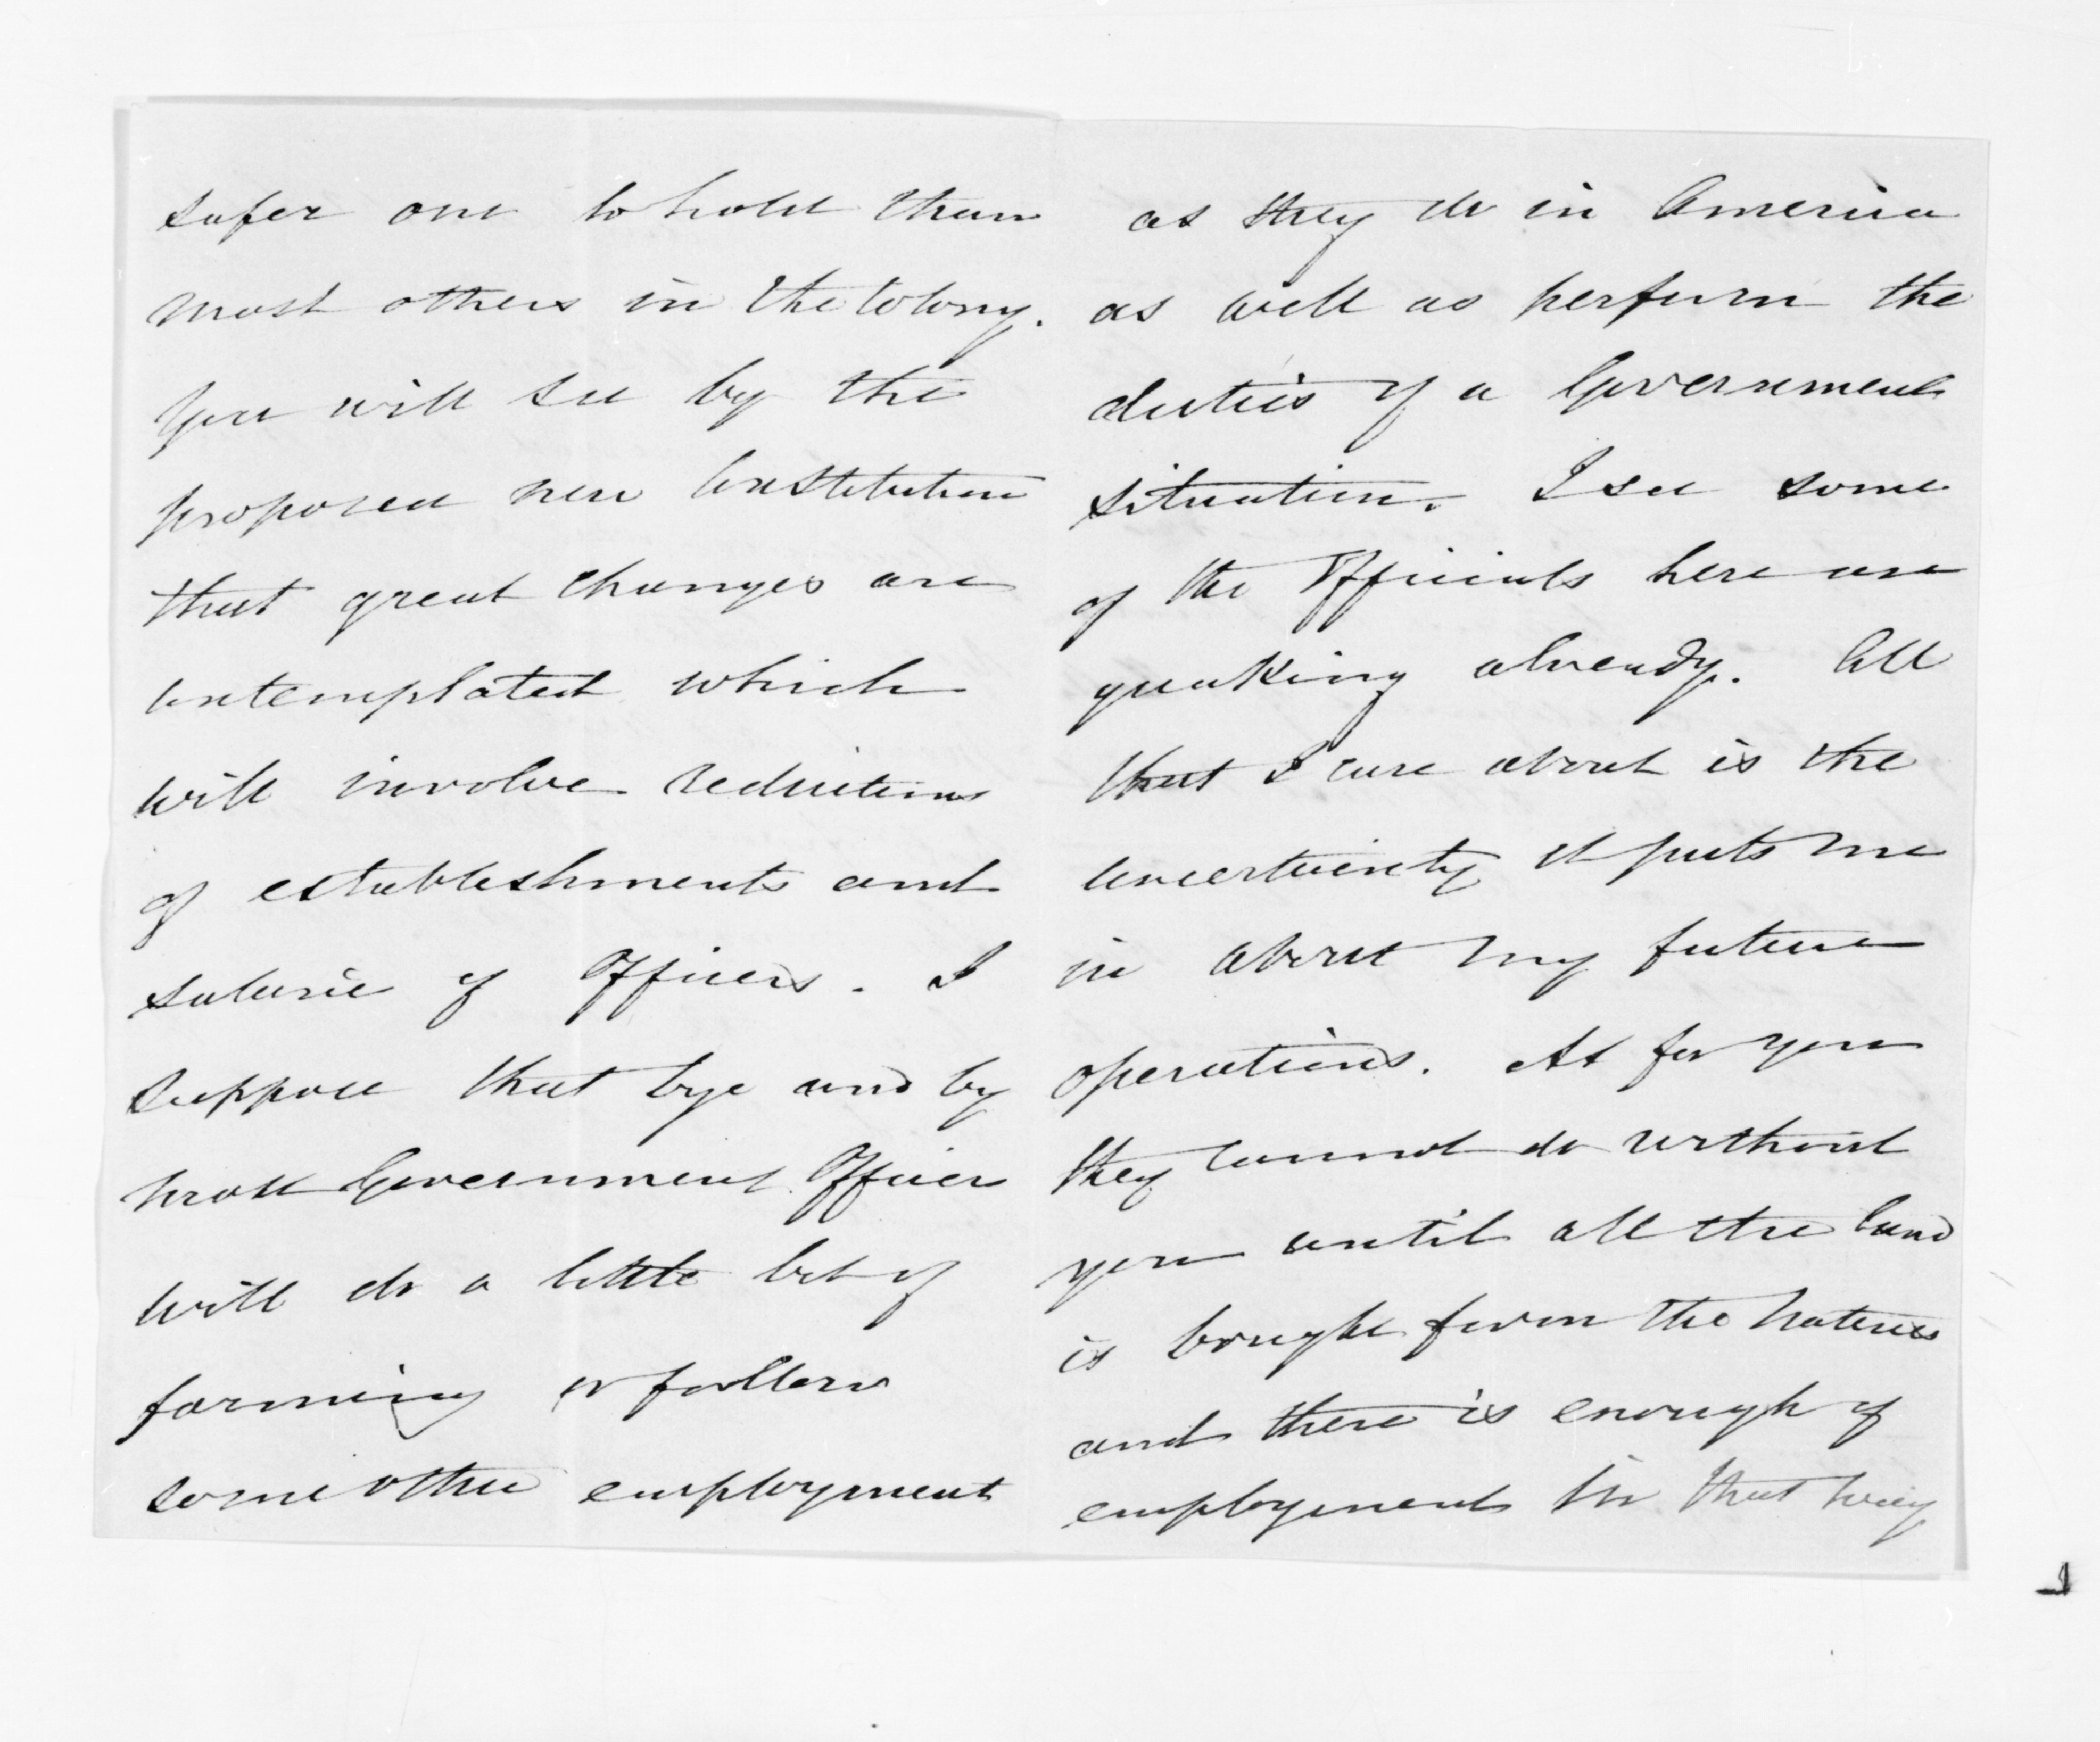 safer one to hold than
most others in the Colony.
You will see by the
proposed new Constitution
that great changes are
contemplated which
will involve reductions
of establishments and
salarie of Officers. I
suppose that bye and by
most Government Officers
will do a little bit of
farming or follow
some other employment
as they do in America
as well as perform the
duties of a Government
situation. I see some
of the Officials here are
quaking already. All
that I care about is the
uncertainty it puts me
in about my future
operations. As for you
they cannot do without
you until all the land
is bought from the Natives
and there is enough of
employment in that way